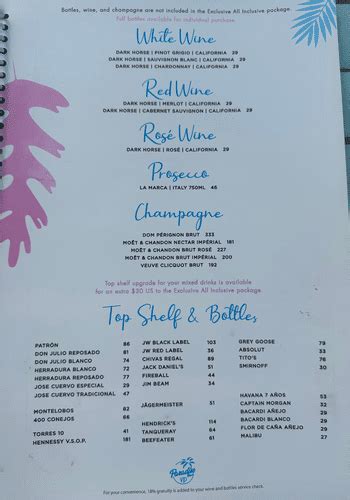 Bottles, wine, and champagne are not included in the Exclusive All Inclusive package.
Full bottles available for individual purchase.
White Wine
DARK HORSE | PINOT GRIGIO | CALIFORNIA 29
DARK HORSE | SAUVIGNON BLANC | CALIFORNIA 29
DARK HORSE | CHARDONNAY | CALIFORNIA 29
Red Wine
DARK HORSE | MERLOT | CALIFORNIA 29
DARK HORSE | CABERNET SAUVIGNON | CALIFORNIA 29
Rosé Wine
DARK HORSE | ROSÉ | CALIFORNIA 29
Prosecco
LA MARCA | ITALY 750ML 46
Champagne
DOM PÉRIGNON BRUT 333
MOËT & CHANDON NECTAR IMPÉRIAL 181
MOËT & CHANDON BRUT ROSÉ 227
MOËT & CHANDON BRUT IMPÉRIAL 200
VEUVE CLICQUOT BRUT 192
Top shelf upgrade for your mixed drinks is available
for an extra $30 US to the Exclusive All Inclusive package.
Top Shelf & Bottles
PATRÓN 86
DON JULIO REPOSADO 81
DON JULIO BLANCO 74
HERRADURA BLANCO 73
HERRADURA REPOSADO 77
JOSE CUERVO ESPECIAL 29
JOSE CUERVO TRADICIONAL 47
MONTELOBOS 62
400 CONEJOS 66
TORRES 10 41
HENNESSY V.S.O.P. 181
JW BLACK LABEL 103
JW RED LABEL 36
CHIVAS REGAL 89
JACK DANIEL'S 51
FIREBALL 44
JIM BEAM 34
JÄGERMEISTER 51
HENDRICK'S 114
TANQUERAY 64
BEEFEATER 61
GREY GOOSE 79
ABSOLUT 33
TITO'S 76
SMIRNOFF 30
HAVANA 7 AÑOS 53
CAPTAIN MORGAN 32
BACARDI AÑEJO 29
BACARDI BLANCO 29
FLOR DE CAÑA AÑEJO 29
MALIBU 27
Paradise
YD
For your convenience, 18% gratuity is added to your wine and bottles service check.